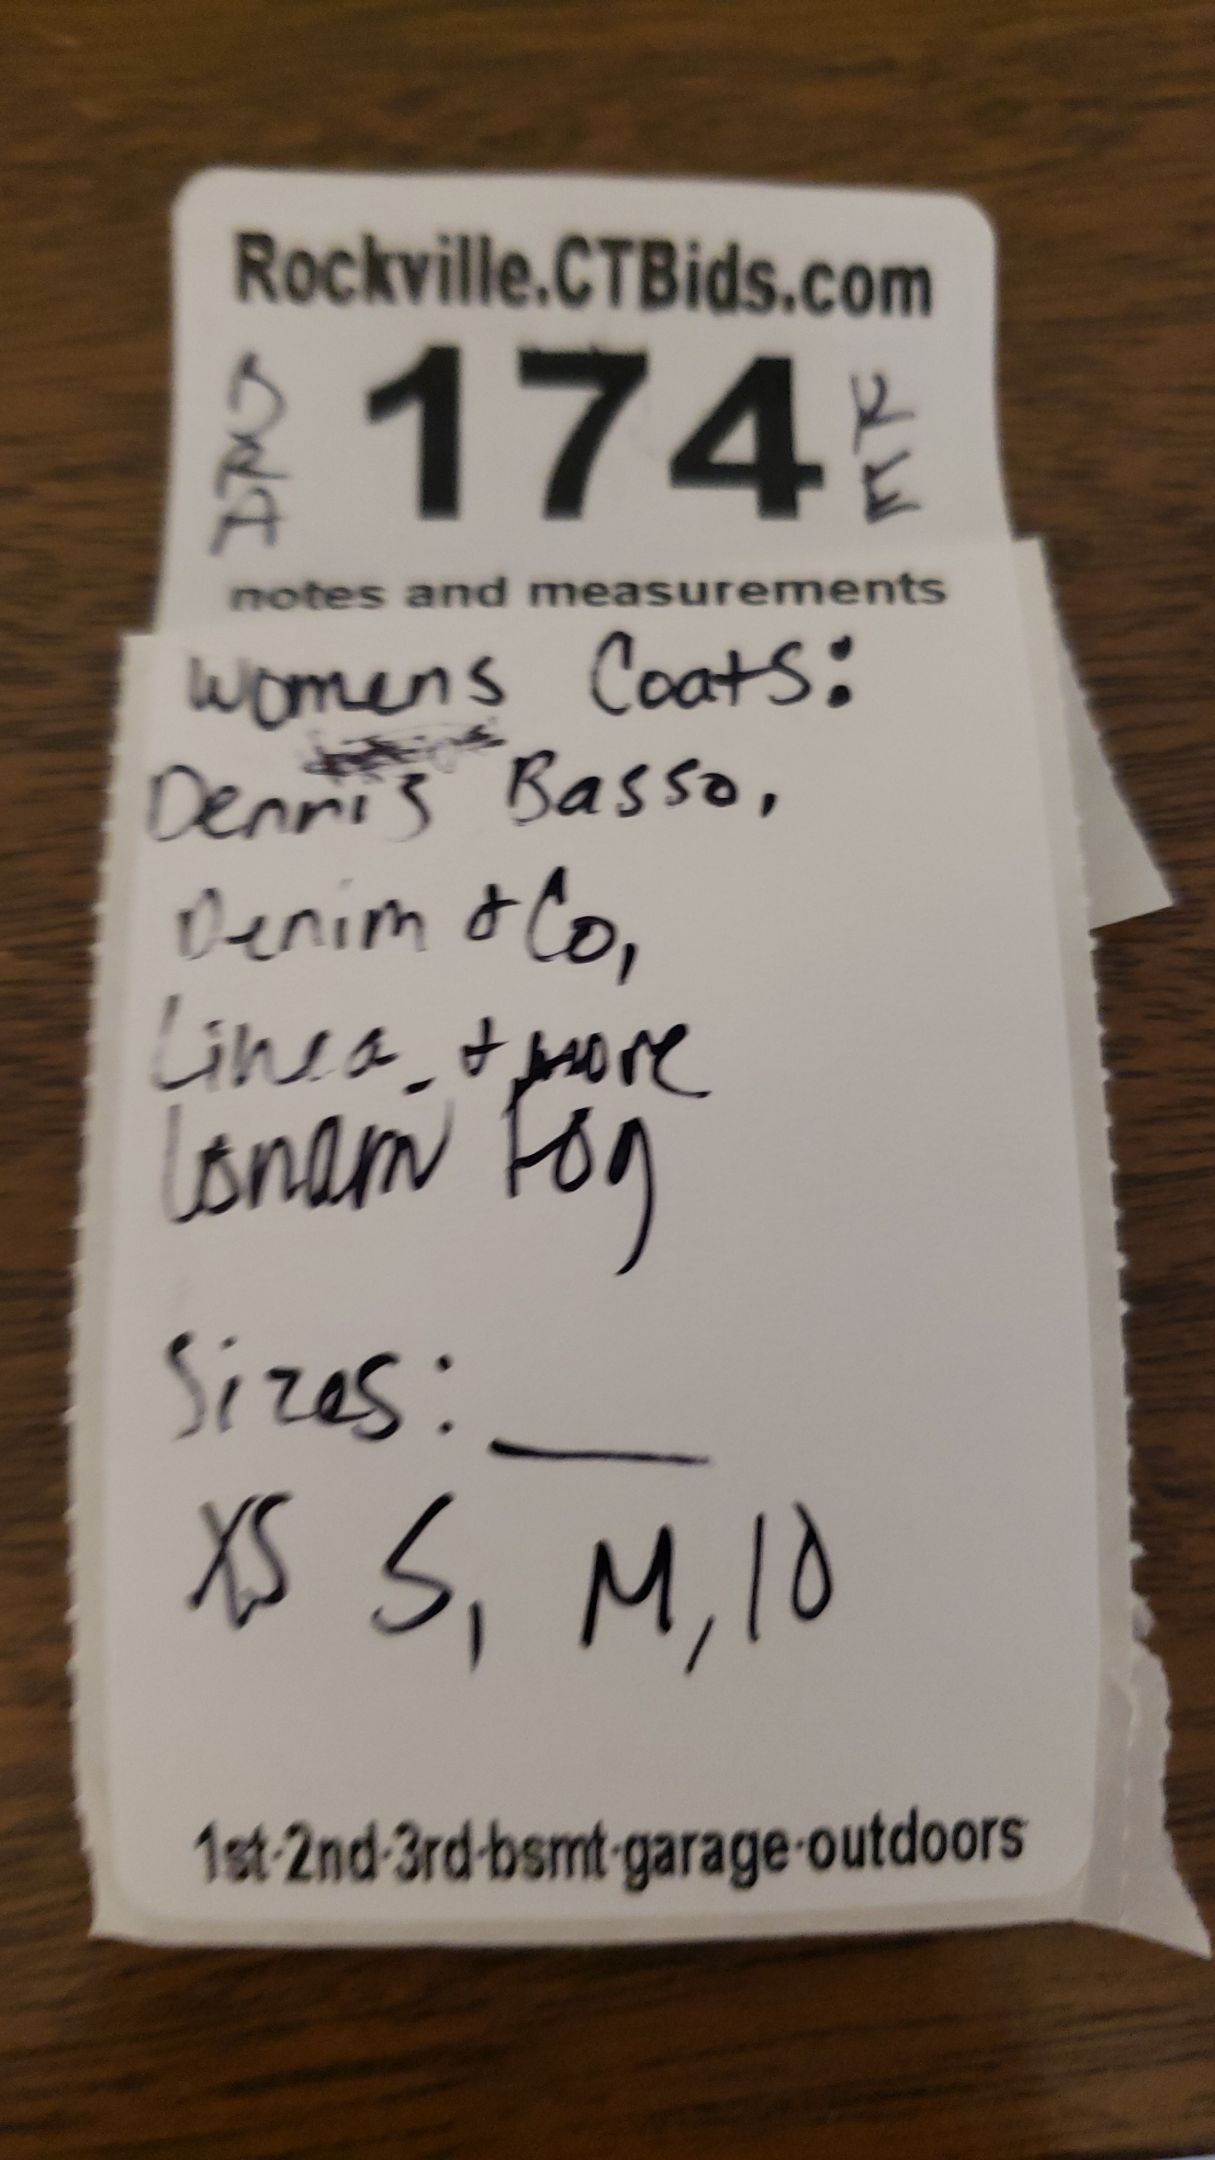 Rockville.CTBids.com
174
K
E
notes and measurements
Womens Coats:
Dennis Basso,
Denim & Co,
Linea & more
London Fog
Sizes:
XS S, M, 10
1st·2nd·3rd·bsmt·garage·outdoors